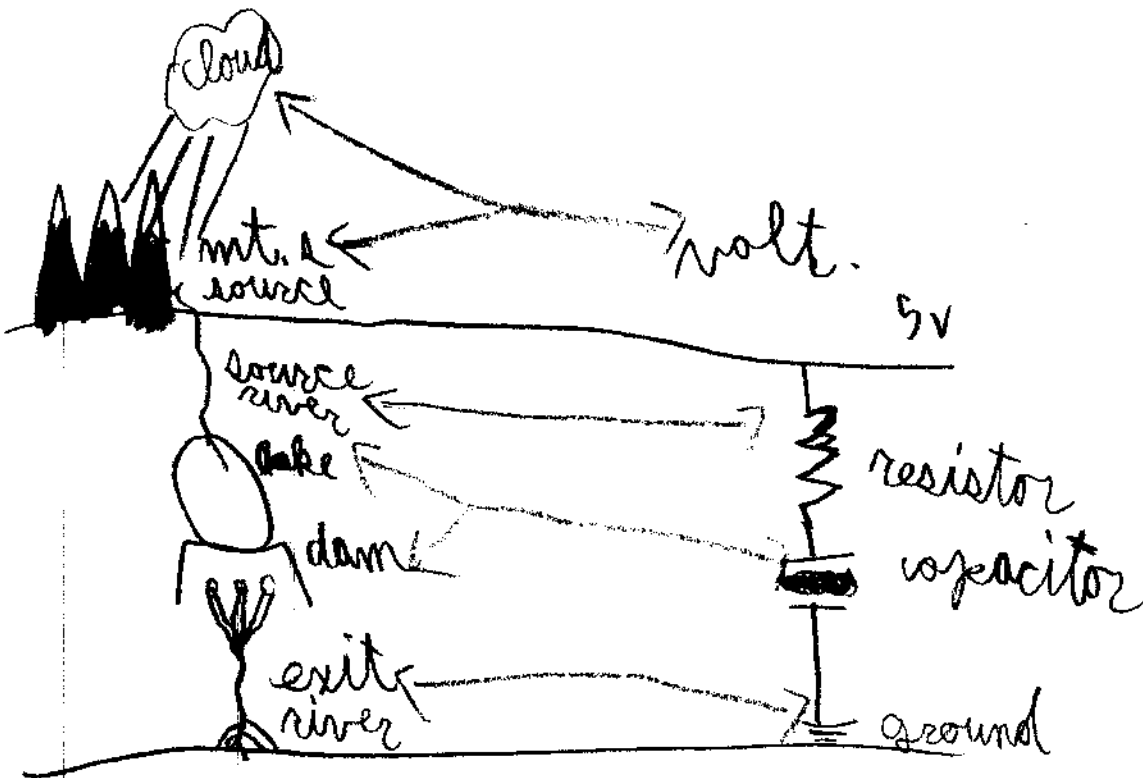 cloud
mt. &
source
volt.
5V
source
river
lake
resistor
dam
capacitor
exit
river
ground